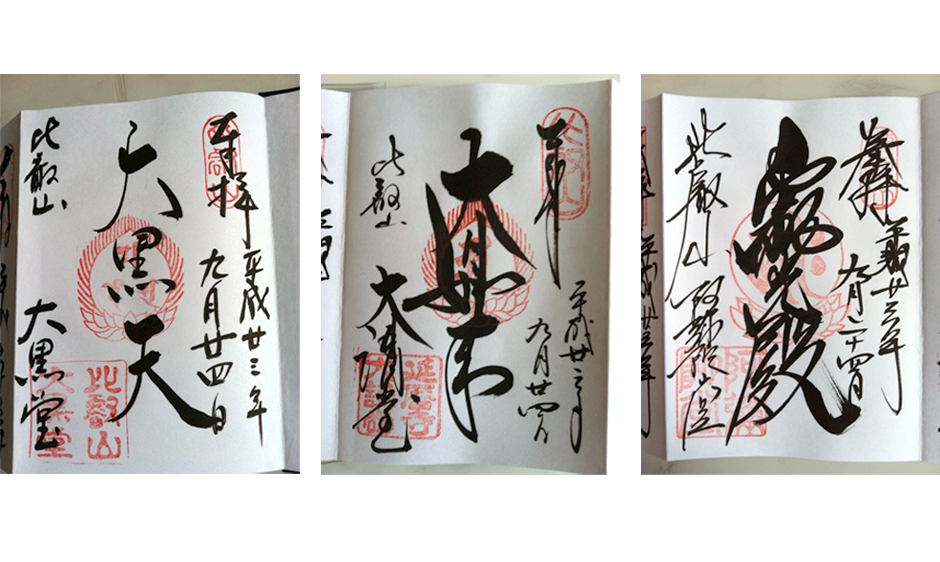 奉拝
平成廿三年
九月廿四日
大黒天
比叡山
大黒堂
比叡山
奉拝
平成廿三年
九月廿四日
大日如来
比叡山
大講堂
延暦寺
奉拝
平成廿三年
九月二十四日
比叡山
阿弥陀堂